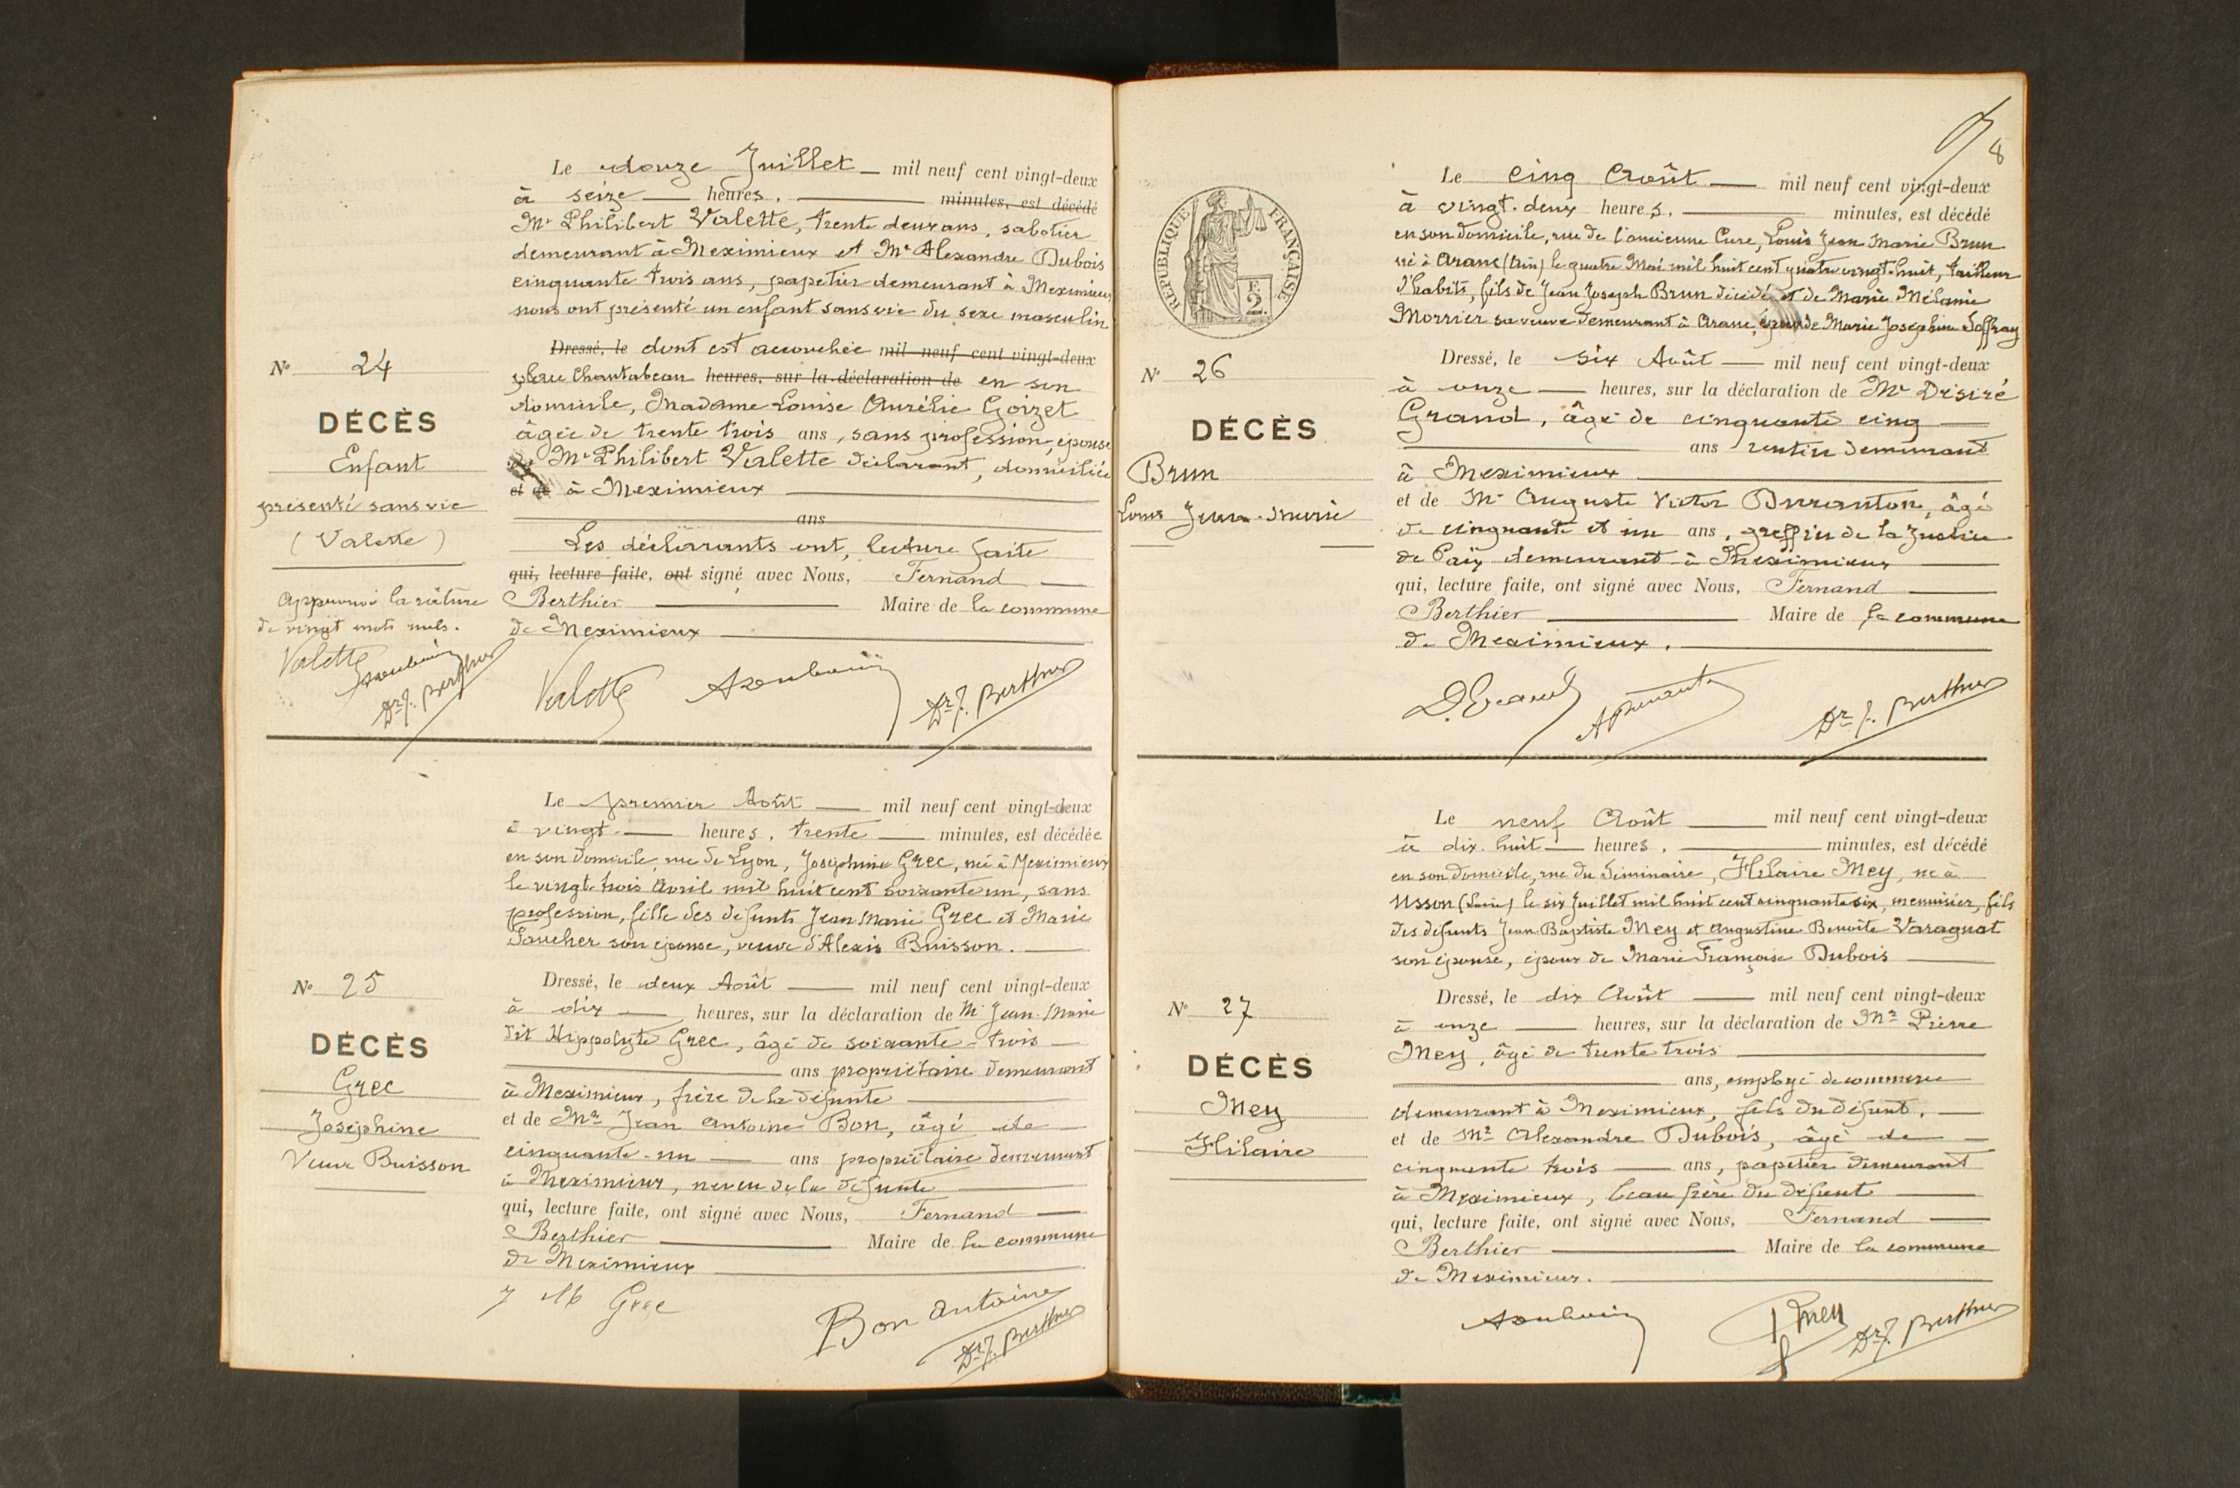 Le douze Juillet — mil neuf cent vingt-deux
à seize — heures. — minutes, est décédé
Mr Philibert Valette, trente deux ans, sabotier
demeurant à Meximieux et Mr Alexandre Dubois
cinquante trois ans, papetier demeurant à Meximieux
nous ont présenté un enfant sans vie du sexe masculin
Dressé, le dont est accouchée mil neuf cent vingt-deux
heures, sur la déclaration de en son
domicile, Madame Louise Aurélie Goizet
âgée de trente trois ans, sans profession, épouse
de Mr Philibert Valette déclarant, domiciliée
et de à Meximieux
ans
Les déclarants ont, lecture faite
qui, lecture faite, ont signé avec Nous, Fernand
Berthier — Maire de la commune
de Meximieux
N° 24
DÉCÈS
Enfant
présenté sans vie
(Valette)
Approuvé la râture
de vingt mots nuls.
Valette
Dr F. Berthier
Valette Dr F. Berthier
Le premier Août — mil neuf cent vingt-deux
à vingt — heures. trente — minutes, est décédée
en son domicile, rue de Lyon, Joséphine Grec, née à Meximieux
le vingt-trois Avril mil huit cent soixante un, sans
profession, fille des défunts Jean Marie Grec et Marie
Faucher son épouse, veuve d'Alexis Buisson.
Dressé, le deux Août — mil neuf cent vingt-deux
à dix — heures, sur la déclaration de Mr Jean-Marie
dit Hippolyte Grec, âgé de soixante-trois
ans propriétaire demeurant
à Meximieux, frère de la défunte
et de Mr Jean Antoine Bon, âgé de
cinquante-un — ans propriétaire demeurant
à Meximieux, neveu de la défunte
qui, lecture faite, ont signé avec Nous, Fernand
Berthier — Maire de la commune
de Meximieux
N° 25
DÉCÈS
Grec
Joséphine
Veuve Buisson
J M Grec Bon Antoine
Dr F. Berthier
8
RÉPUBLIQUE FRANÇAISE
F.
2.
Le cinq Août — mil neuf cent vingt-deux
à vingt-deux heures. — minutes, est décédé
en son domicile, rue de l'ancienne Cure, Louis Jean Marie Brun
né à Aranc (Ain) le quatre Mai mil huit cent quatre vingt-huit, tailleur
d'habits, fils de Jean Joseph Brun décédé et de Marie Mélanie
Morrier sa veuve demeurant à Aranc, époux de Marie Joséphine Joffray
Dressé, le six Août — mil neuf cent vingt-deux
à onze — heures, sur la déclaration de Mr Désiré
Grand, âgé de cinquante cinq
ans rentier demeurant
à Meximieux
et de Mr Auguste Victor Duranton, âgé
de cinquante et un ans, greffier de la Justice
de Paix demeurant à Meximieux
qui, lecture faite, ont signé avec Nous, Fernand
Berthier — Maire de la commune
de Meximieux.
N° 26
DÉCÈS
Brun
Louis Jean-Marie
D. Grand Dr F. Berthier
Le neuf Août — mil neuf cent vingt-deux
à dix-huit — heures. — minutes, est décédé
en son domicile, rue du Séminaire, Hilaire Mey, né à
Usson (Loire) le six Juillet mil huit cent cinquante six, menuisier, fils
des défunts Jean Baptiste Mey et Augustine Benoîte Varagnat
son épouse, époux de Marie Françoise Dubois
Dressé, le dix Août — mil neuf cent vingt-deux
à onze — heures, sur la déclaration de Mr Pierre
Mey, âgé de trente trois
ans, employé de commerce
demeurant à Meximieux, fils du défunt.
et de Mr Alexandre Dubois, âgé de
cinquante trois — ans, papetier demeurant
à Meximieux, beau frère du défunt
qui, lecture faite, ont signé avec Nous, Fernand
Berthier — Maire de la commune
de Meximieux.
N° 27
DÉCÈS
Mey
Hilaire
P Mey Dr F. Berthier